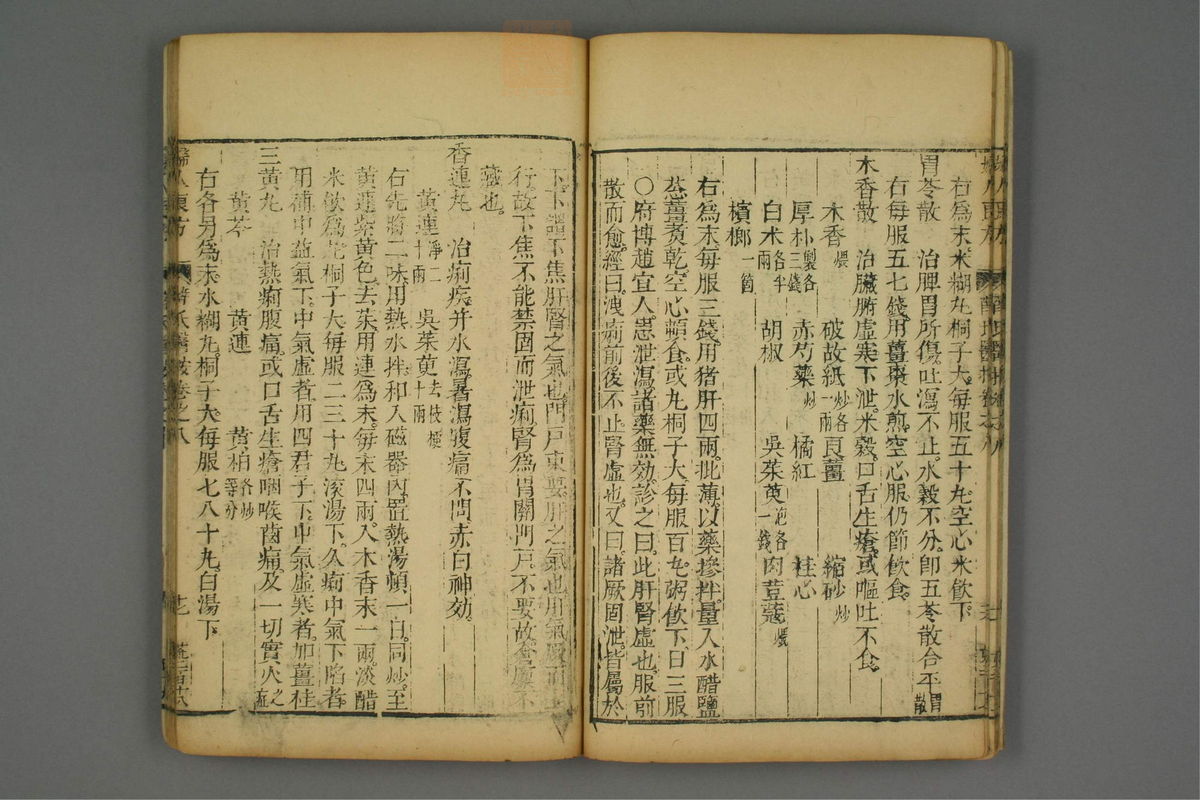 右爲末米糊丸桐子大每服五十丸空心米飲下
胃苓散　治脾胃所傷吐瀉不止水穀不分卽五苓散合平胃散
右每服五七錢用薑棗水煎空心服仍節飲食
木香散　治臟腑虛寒下泄米穀口舌生瘡或嘔吐不食
木香煨　破故紙炒各一兩　良薑　縮砂炒
厚朴製各三錢　赤芍藥炒　橘紅　桂心
白朮各半兩　胡椒　吳茱萸泡各一錢　肉荳蔻煨
檳榔一箇
右爲末每服三錢用猪肝四兩批薄以藥摻拌量入水醋鹽
葱薑煑乾空心頓食或丸桐子大每服百丸粥飲下日三服
○府博趙宜人患泄瀉諸藥無効診之曰此肝腎虛也服前
散而愈經曰洩痢前後不止腎虛也又曰諸厥固泄皆屬於
下下謂下焦肝腎之氣也門戶束要肝之氣也
行故下焦不能禁固而泄痢腎爲胃關門戶不要故倉廩不
藏也
香連丸　治痢疾并水瀉暑瀉腹痛不問赤白神効
黃連淨二十兩　吳茱萸去枝梗十兩
右先將二味用熱水拌和入磁器內置熱湯頓一日同炒至
黃連紫黃色去茱用連爲末每末四兩入木香末一兩淡醋
米飲爲丸桐子大每服二三十丸滾湯下久痢中氣下陷者
用補中益氣下中氣虛者用四君子下中氣虛寒者加薑桂
三黃丸　治熱痢腹痛或口舌生瘡咽喉齒痛及一切實火之症
黃芩　黃連　黃柏各炒等分
右各另爲末水糊丸桐子大每服七八十丸白湯下
婦人良方　卷之八